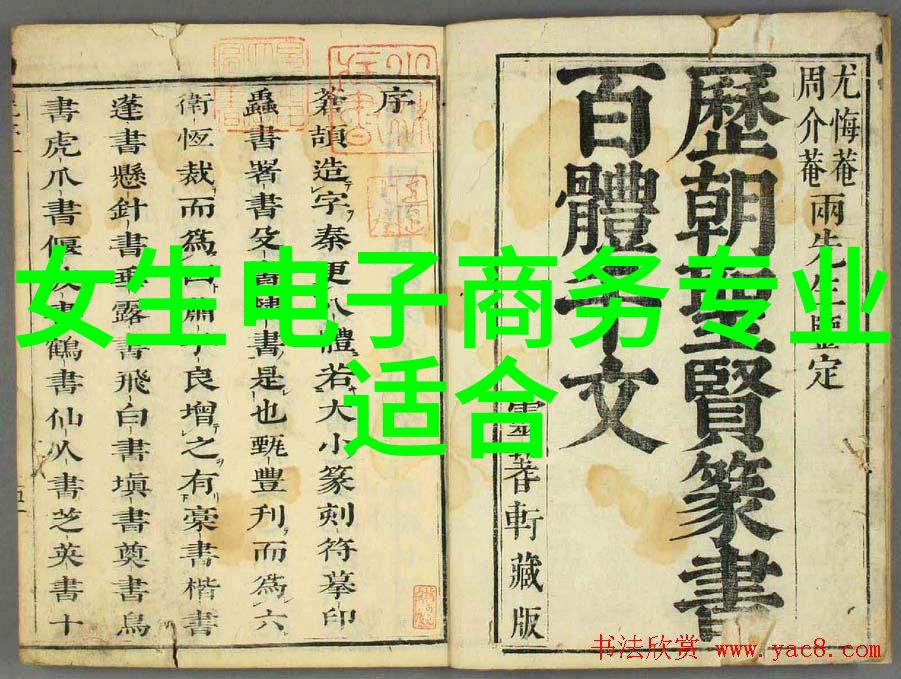 女生电子商务专业
适合
尤悔菴
周介菴
兩先生鑒定
歷朝聖賢篆書
百體千文
軒藏版
序
蒼頡造字秦更八體若大小篆刻符摹印
蟲書署書殳書隷書是也甄豐刋而爲六
衛恆裁而爲四蕭子良增之有稾書楷書
蓬書懸針書垂露書飛白書塡書奠書鳥
書虎爪書偃波書鶴書仙人書芝英書十
书法欣赏 www.yac8.com